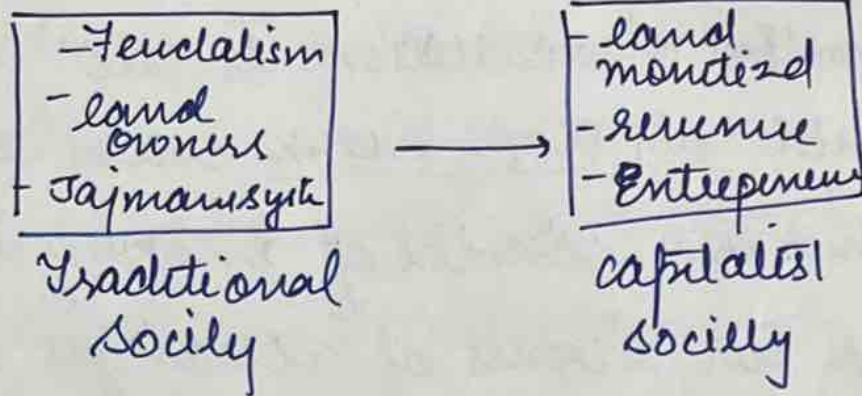 - Feudalism
- land
owners
- Jajmani syst
Traditional
Socity
- land
monitized
- revenue
- Entrepeneur
capitalist
socilly